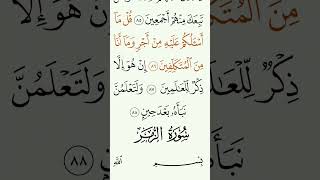 تَبِعَكَ مِنْهُمْ أَجْمَعِينَ ٨٥ قُلْ مَا
أَسْـَٔلُكُمْ عَلَيْهِ مِنْ أَجْرٍ وَمَا أَنَا
مِنَ الْمُتَكَلِّفِينَ ٨٦ إِنْ هُوَ إِلَّا
ذِكْرٌ لِّلْعَالَمِينَ ٨٧ وَلَتَعْلَمُنَّ
نَبَأَهُ بَعْدَ حِينٍ ٨٨
سُورَةُ الزُّمَرِ
بِسْمِ اللَّهِ